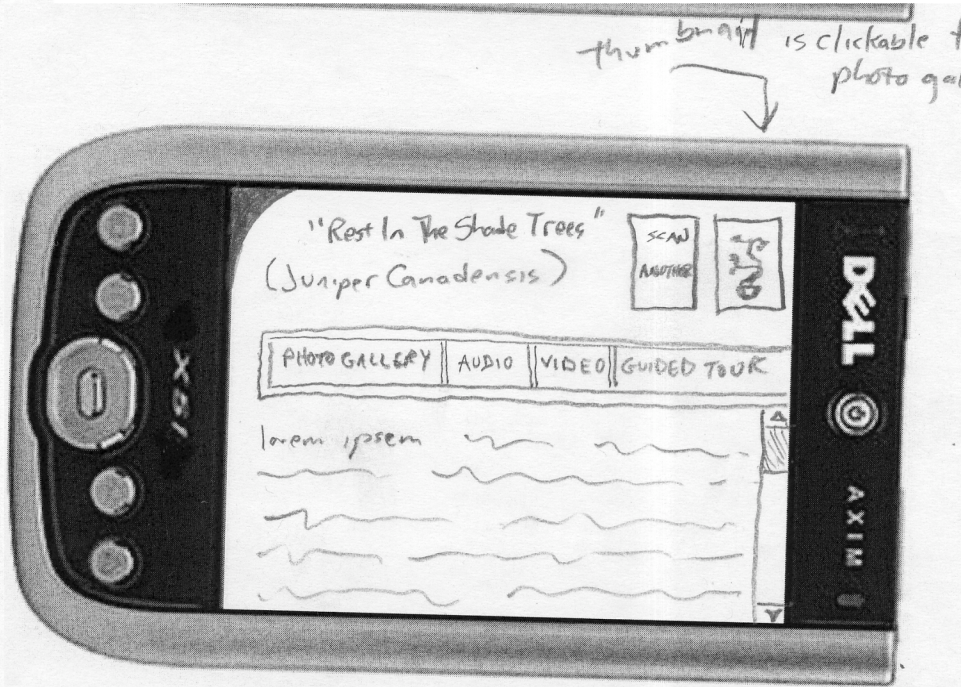 thumbnail is clickable
photo
"Rest In The Shade Trees"
(Juniper Canadensis)
SCAN
ANOTHER
PHOTO GALLERY AUDIO VIDEO GUIDED TOUR
lorem ipsem
X51
DELL
AXIM